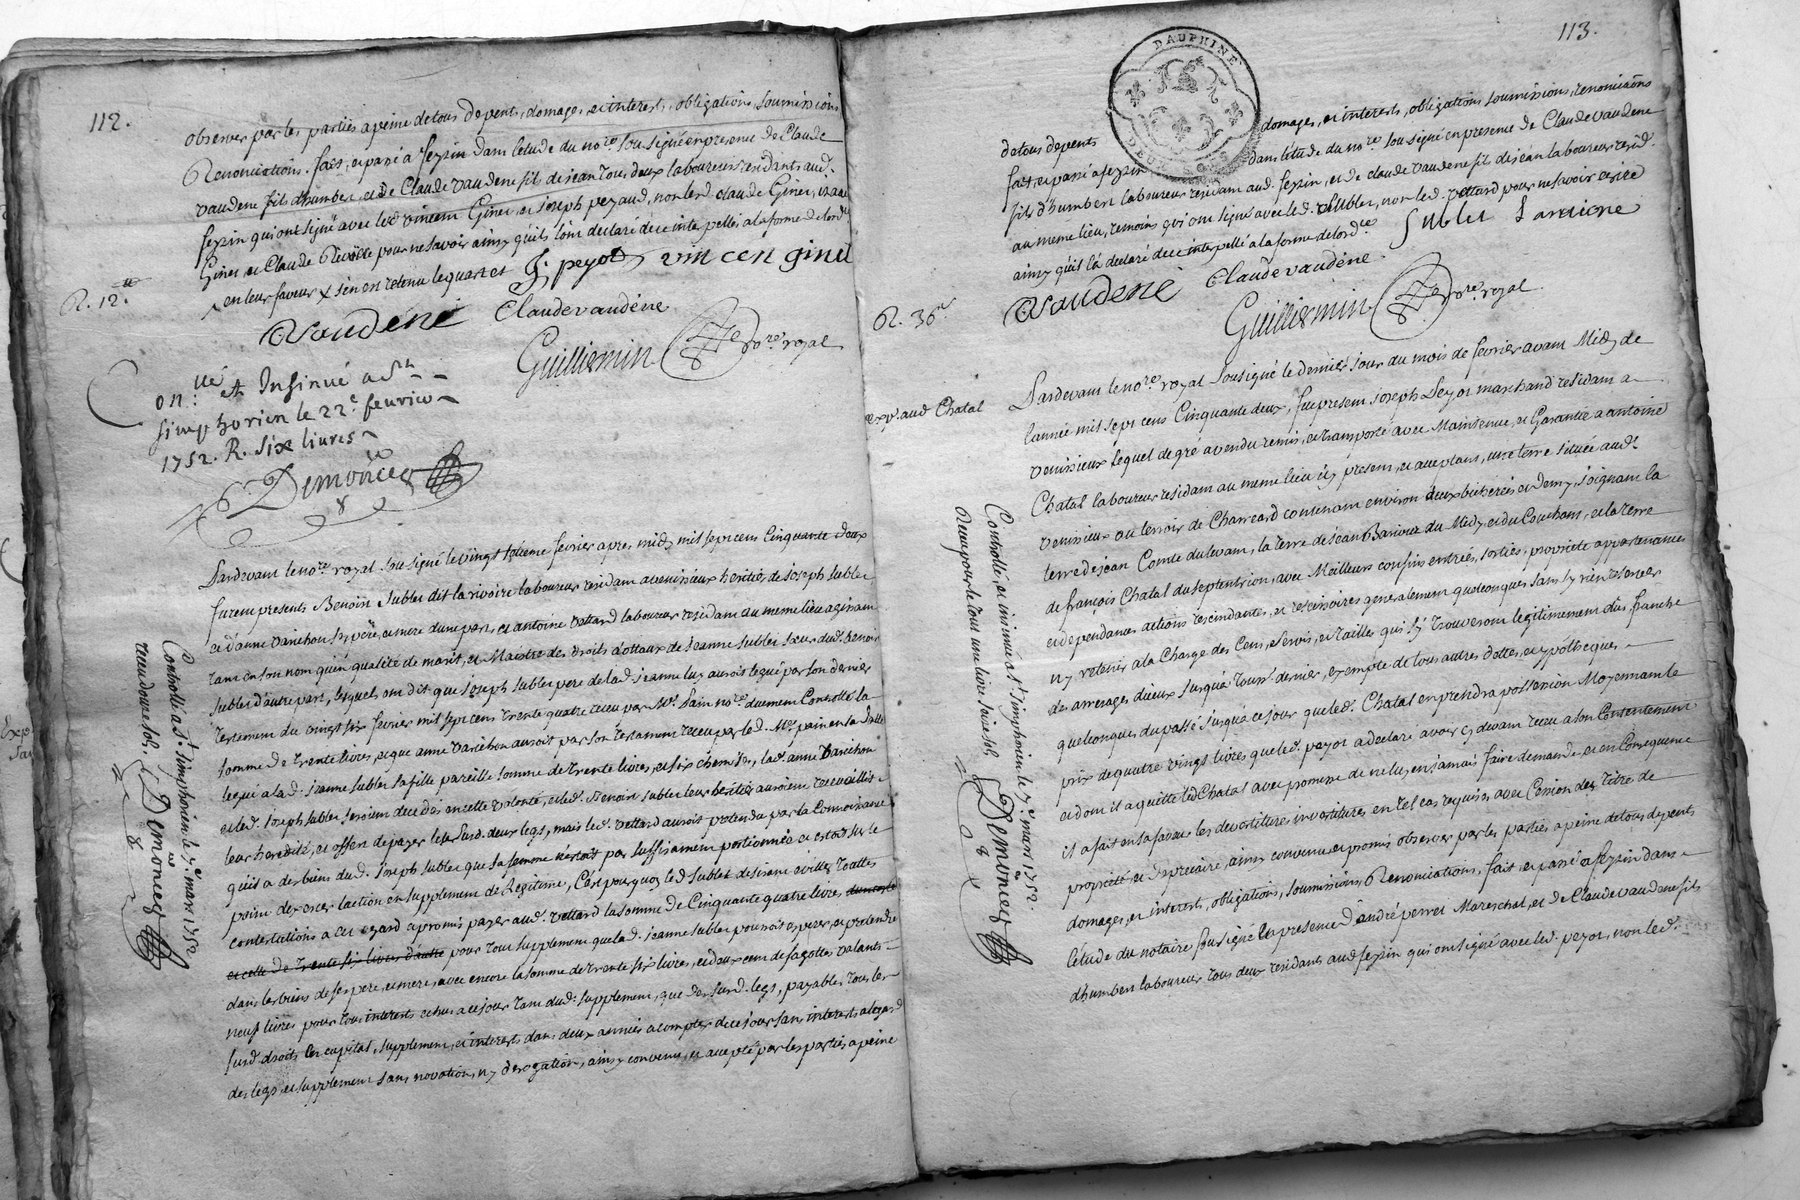 112.
observer par les parties a peine de tous depents, domages, et interests, obligations, soumissions
Renonciations. fait, et passé a feyzin dans letude du no.re sousigné en presence de Claude
vaudene fils d'humbert et de Claude vaudene fils de jean tous deux laboureurs residants aud.
feyzin qui ont signé avec led. vincent Ginet, et joseph peyaud, non led. claude Ginet,
Ginet, et Claude pour ne savoir ainsy qu'ils l'ont declaré de ce interpellés a la forme de lord.ce
en leur faveur x s'en en retenu le quart et
R. 12.tt
J. peyot vincen ginet
Vaudené Claude vaudéne
Guilliermin no.re royal
Con.llé et Insinué a St.
simphorien le 22.e feurier
1752. R. six liures
Demoncez
Pardevant le no.re royal sousigné le vingt sixieme fevrier apres midy mil sept cens Cinquante deux
furent presents Benoin Sublet dit la riviere laboureur residant a venissieux heritier de joseph sublet
et d'anne varichon ses pere, et mere d'une part, et antoine vettard laboureur residant au meme lieu agissant
tant en son nom qu'en qualité de marit, et Maistre des droits dottaux de jeanne sublet sœur dud. benoit
sublet d'autre part, lesquels ont dit que joseph sublet pere de lad. jeanne luy auroit legué par son dernier
testament du vingt six fevrier mil sept cens trente quatre receu par M.e pain no.re duement Controllé la
somme de trente livres, et que anne varichon auroit par son testament receu par led. M.e pain en la
legué a lad. jeanne sublet sa fille pareille somme de trente livres, et six chemises, lad. anne varichon
et led. joseph sublet seroient decedés en cette volonté, et led. Benoit sublet leur heritier auroient recueillis
leur heredité, et offert de payer lesd. surd. deux legs, mais led. vettard auroit pretendu par la connoissance
qu'il a des biens dud. joseph sublet que sa femme n'estoit pas suffisament portionnée et estoit sur le
point d'exercer laction en supplement de legitime, C'est pourquoy led. sublet desirant eviter toattes
contestations a cet egard a promis payer aud. vettard la somme de Cinquante quatre livres
et celle de trente six livres d'autre pour tout supplement que lad. jeanne sublet pouroit esperer, et pretendre
dans les biens de ses pere, et mere, avec encore la somme de trente six livres, et deux cens de fagottes valants
neuf livres pour tous interests echus a ce jour tant dud. supplement, que des surd. legs, payables tous les
surd. droits en capital, supplement, et interests dans deux années a compter de ce jour sans interests a legard
des legs et supplement sans novation, n'y derogation, ainsy convenu, et accepté par les parties, a peine
Controllé a St. simphorien le 7.e mars 1752
receu douze sols. Demoncez
113.
DAUPHINE
DEUX
de tous depents domages, et interests, obligations soumissions, renonciations
fait, et passé a feyzin dans letude du no.re sousigné en presence de Claude vaudene
fils d'humbert laboureur residant aud. feyzin, et de claude vaudene fils de jean laboureur resid.
au meme lieu, temoins qui ont signé avec led. sublet, non led. vettard pour ne savoir ecrire
ainsy qu'il l'a declaré de ce interpellé a la forme de lord.ce
Sublet Lariviere
R. 36.
Vaudené Claude vaudéne
Guilliermin no.re royal
exp. aud. Chatal
Pardevant le no.re royal sousigné le dernier jour du mois de fevrier avant Midy de
lannée mil sept cens Cinquante deux, fut present joseph Peyot marchand residant a
venissieux lequel de gré a vendu remis, et transporté avec Maintenue, et Garantie a antoine
Chatal laboureur residant au meme lieu icy present, et acceptant, une terre située aud.
venissieux au terroir de Charreard contenant environ deux bicherées et demy, joignant la
terre de jean Comte du levant, la terre de jean Barioz du Midy et du Couchant, et la terre
de françois Chatal du septentrion, avec Meilleurs confins entrées, sorties, propriété appartenances
et dependances actions rescindantes, et rescisoires generalement quelconques sans sy rien reserver
n'y retenir a la Charge des Cens, et servis, et tailles qui s'y trouveront legitimement dus franche
des arrerages d'iceux jusqu'a Tour. dernier, exempte de tous autres dettes, et ypotheques
quelconques du passé jusqu'a ce jour que led. Chatal en prendra possession Moyennant le
prix de quatre vingt livres que led. peyot a declaré avoir cy devant receu a son Contentement
et dont il a quitté led. Chatal avec promesse de ne luy en jamais faire demande et en Consequence
il a fait en sa faveur les devestitures, investitures en tel cas requises avec Cession des titre de
propriété, et de precaire, ainsy convenu et promis observer par les parties a peine de tous depents
domages, et interests, obligations, soumissions, Renonciations, fait et passé a feyzin dans
letude du notaire sousigné en presence d'andré perret Mareschal, et de Claude vaudene fils
d'humbert laboureur tous deux residants aud. feyzin qui ont signé avec led. peyot, non led.
Controllé, et insinué a St. simphorien le 7.e mars 1752.
Receu pour le tout une livre seize sols Demoncez